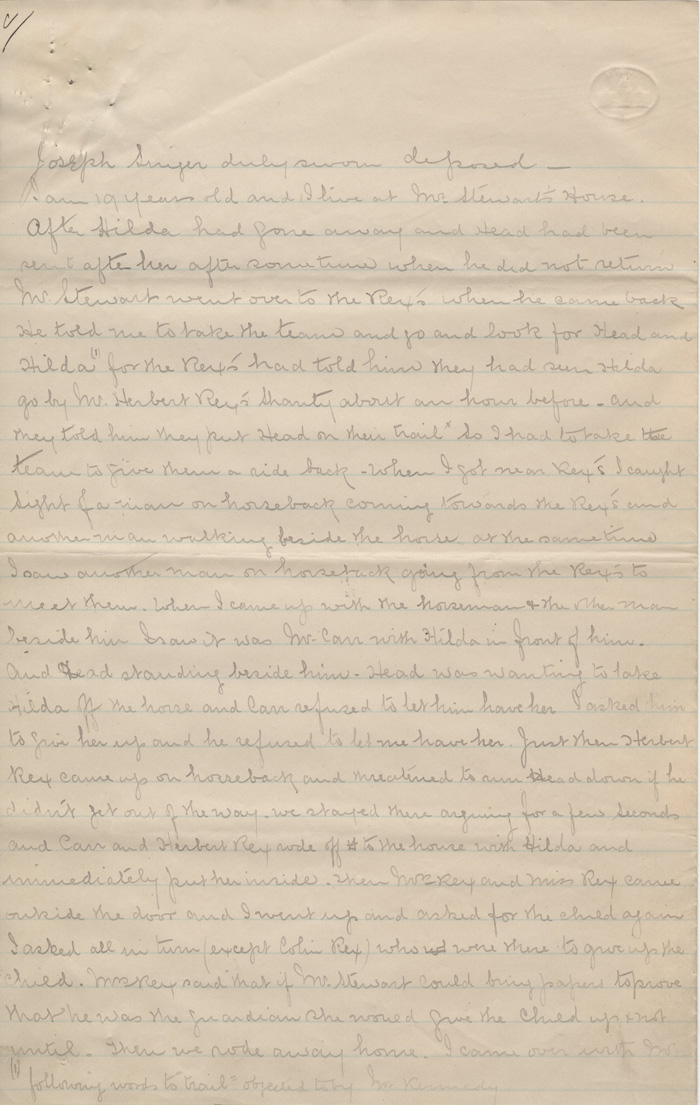 Joseph Singer duly sworn deposed —
I am 19 years old and I live at Mr. Stewart's House.
After Hilda had gone away and Head had been
sent after her after sometime when he did not return
Mr. Stewart went over to the Rex's when he came back
He told me to take the team and go and look for Head and
Hilda (1) for the Rex's had told him they had seen Hilda
go by Mr. Herbert Rey's Shanty about an hour before - and
they told him they put Head on their trail x So I had to take the
team to give them a ride back - When I got near Rex's I caught
Sight of a man on horseback coming towards the Rex's and
another man walking beside the horse at the sametime
I saw another man on horseback going from the Rex's to
meet them. When I came up with the horseman & the other man
beside him I saw it was Mr. Carr with Hilda in front of him.
And Head standing beside him - Head was wanting to take
Hilda off the horse and Carr refused to let him have her I asked him
to give her up and he refused to let me have her. Just then Herbert
Rex came up on horseback and threatened to run Head down if he
didn't get out of the way - we stayed there arguing for a few seconds
and Carr and Herbert Rex rode off to the house with Hilda and
immediately put her inside. Then Mrs Rex and Miss Rex came
outside the door and I went up and asked for the child again
I asked all in turn (except Colin Rex) who were there to give up the
child. Mrs Rex said that if Mr. Stewart could bring papers to prove
that he was the guardian she would give the child up & not
until - Then we rode away home. I came over with Mr.
(1) following words to trail x objected to by Mr Kennedy